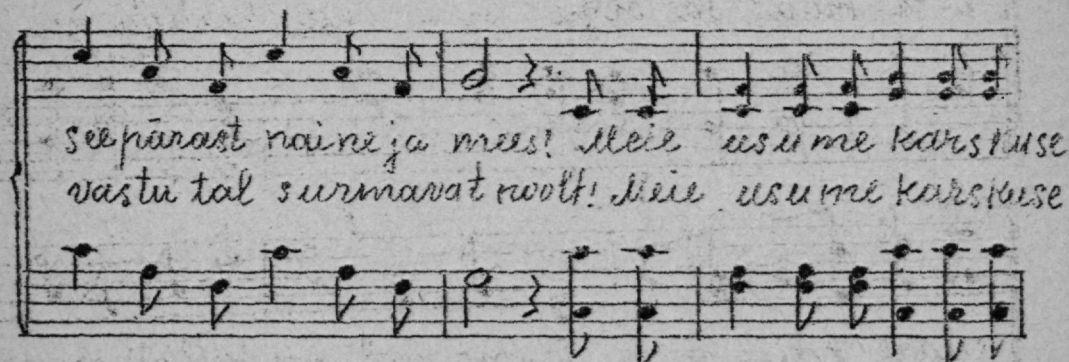 seepärast naine ja mees! Meie usume karskuse
vastu tal surmavat noolt! Meie usume karskuse